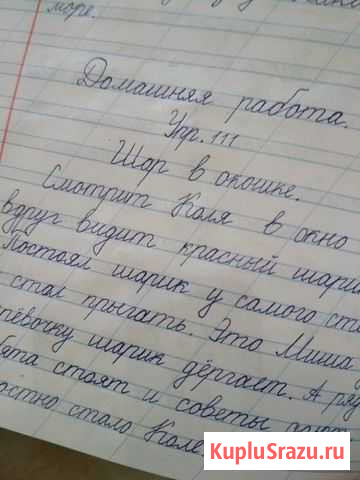 море.
Домашняя работа.
Упр. 111
Шар в окошке.
Смотрит Коля в окно
вдруг видит красный шари
Постоял шарик у самого сте
стал прыгать. Это Миша
верёвочку шарик дёргает. А ря
бята стоят и советы дают
остно стало Коле.
KupluSrazu.ru